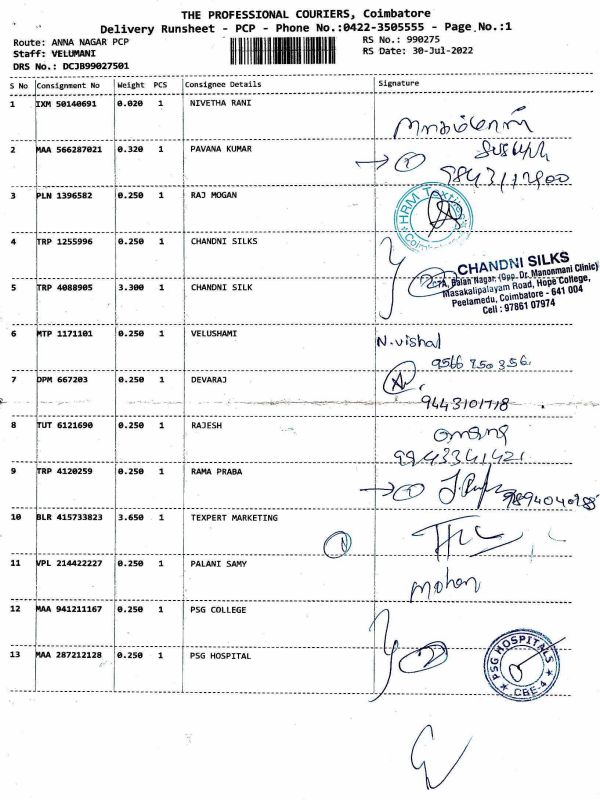 THE PROFESSIONAL COURIERS, Coimbatore
Delivery Runsheet - PCP - Phone No.:0422-3505555 - Page No.:1
Route: ANNA NAGAR PCP
RS No.: 990275
Staff: VELUMANI
RS Date: 30-Jul-2022
DRS No.: DCJB99027501
S No Consignment No Weight PCS Consignee Details Signature
1 IXM 50140691 0.020 1 NIVETHA RANI
2 MAA 566287021 0.320 1 PAVANA KUMAR
3 PLN 1396582 0.250 1 RAJ MOGAN
HRM Textiles
4 TRP 1255996 0.250 1 CHANDNI SILKS
CHANDNI SILKS
Balan Nagar, (Opp. Dr. Manonmani Clinic)
Masakalipalayam Road, Hope College,
Peelamedu, Coimbatore - 641 004
Cell : 97861 07974
5 TRP 4088905 3.300 1 CHANDNI SILK
6 MTP 1171101 0.250 1 VELUSHAMI
N.vishal
9566 750 356
7 DPM 667203 0.250 1 DEVARAJ
8 TUT 6121690 0.250 1 RAJESH
9943341421
9 TRP 4120259 0.250 1 RAMA PRABA
10 BLR 415733823 3.650 1 TEXPERT MARKETING
11 VPL 214422227 0.250 1 PALANI SAMY
mohan
12 MAA 941211167 0.250 1 PSG COLLEGE
13 MAA 287212128 0.250 1 PSG HOSPITAL
2
PSG HOSPITALS
CBE-4